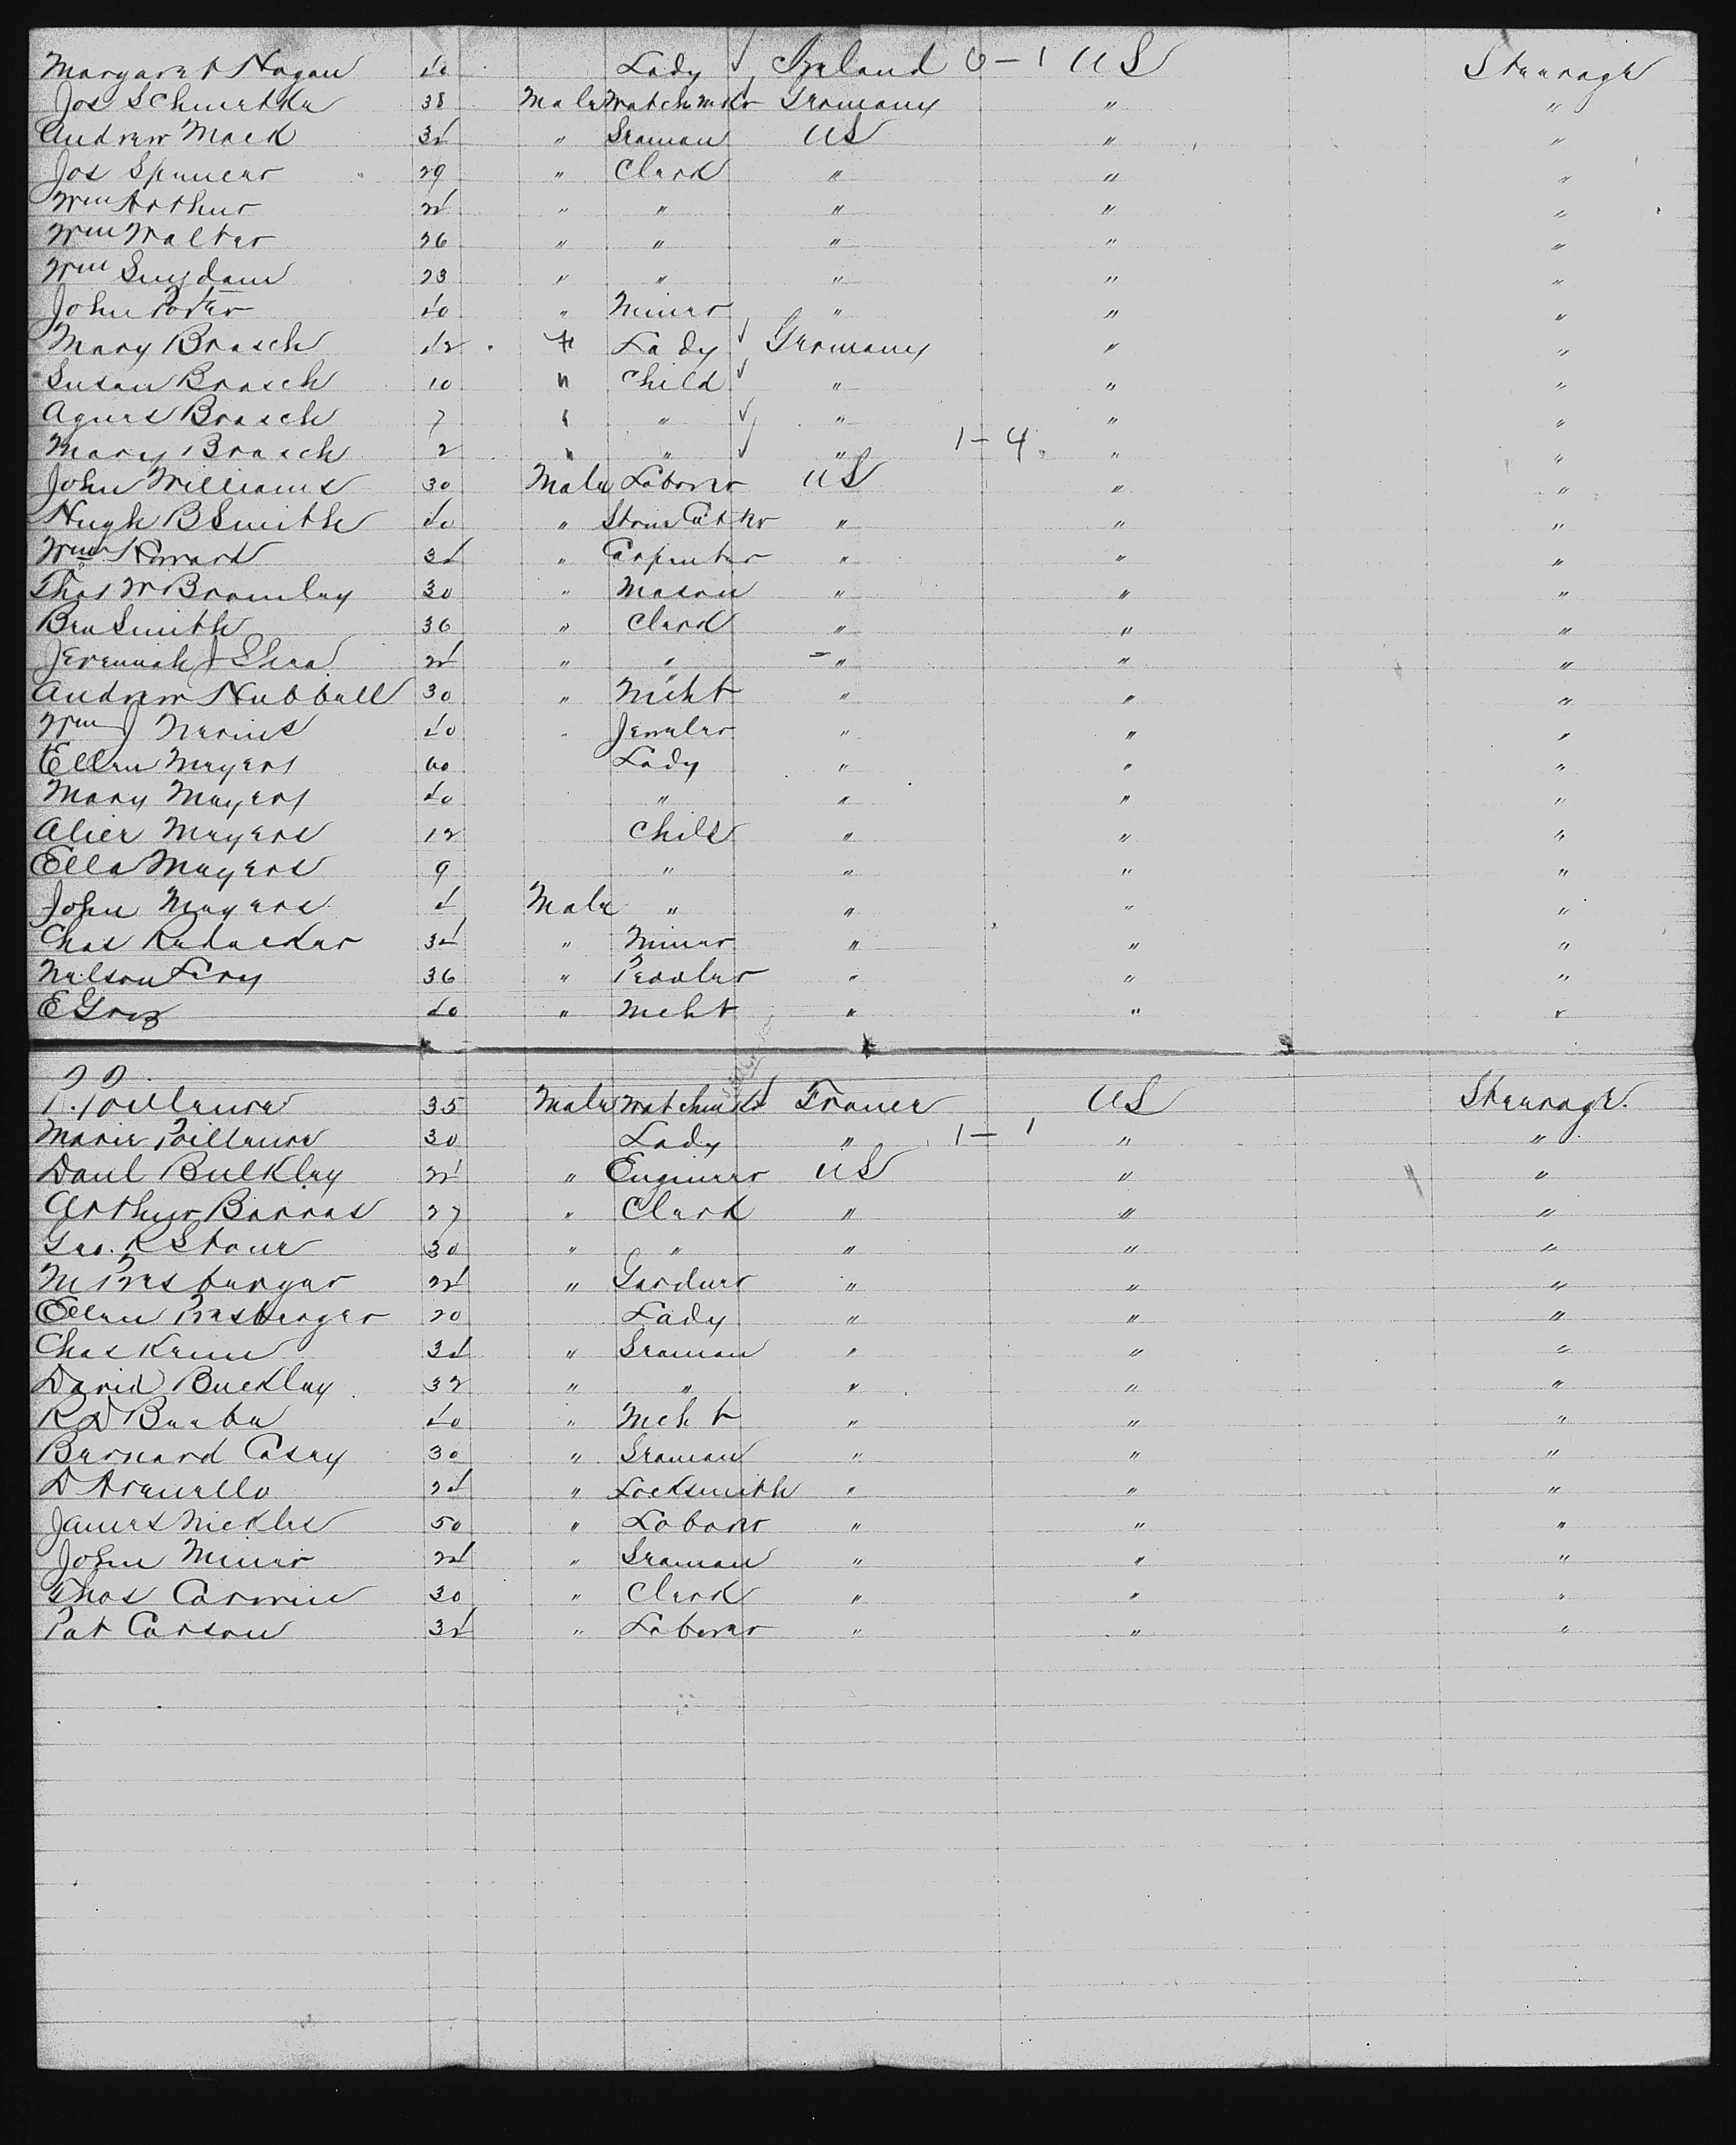 Margaret Hogan 40 Lady Ireland 0-1 US Steerage
Jos Schwetke 38 Male Watchmakr Germany " "
Andrew Mack 34 " Seaman US " "
Jos Spencer 29 " Clerk " " "
Wm Arthur 24 " " " " "
Wm Walter 26 " " " " "
Wm Suydam 23 " " " " "
John Porter 40 " Miner " " "
Mary Brasch 42 F Lady Germany " "
Susan Brasch 10 " Child " " "
Agnes Brasch 7 " " " " "
Mary Brasch 2 " " " 1-4 " "
John Williams 30 Male Laborer US " "
Hugh B Smith 40 " Stone Cutter " " "
Wm Howard 34 " Carpenter " " "
Thos W Bromley 30 " Mason " " "
Ben Smith 36 " Clerk " " "
Jeremiah J Shea 24 " " " " "
Andrew Hubbell 30 " Mcht " " "
Wm J Nevius 40 " Jeweler " " "
Ellen Meyers 60 Lady " " "
Mary Meyers 40 " " " "
Alice Meyers 12 Child " " "
Ella Meyers 9 " " " "
John Meyers 4 Male " " " "
Chas 34 " Miner " " "
Nelson Levy 36 " Peddler " " "
E 40 " Mcht " " "
35 Male Watchmkr France US Steerage
Marie 30 Lady " 1-1 " "
Danl Bulkley 24 " Engineer US " "
Arthur Barras 27 " Clerk " " "
Geo. R Stone 30 " " " " "
M Presburger 24 " Gardner " " "
Ellen Presburger 20 Lady " " "
Chas Kenn 34 " Seaman " " "
David Buckley 32 " " " " "
R D Beebe 40 " Mcht " " "
Bernard Casey 30 " Seaman " " "
D 24 " Locksmith " " "
James Nickles 50 " Laborer " " "
John Miner 24 " Seaman " " "
Thos Corwin 30 " Clerk " " "
Pat Carson 34 " Laborer " " "